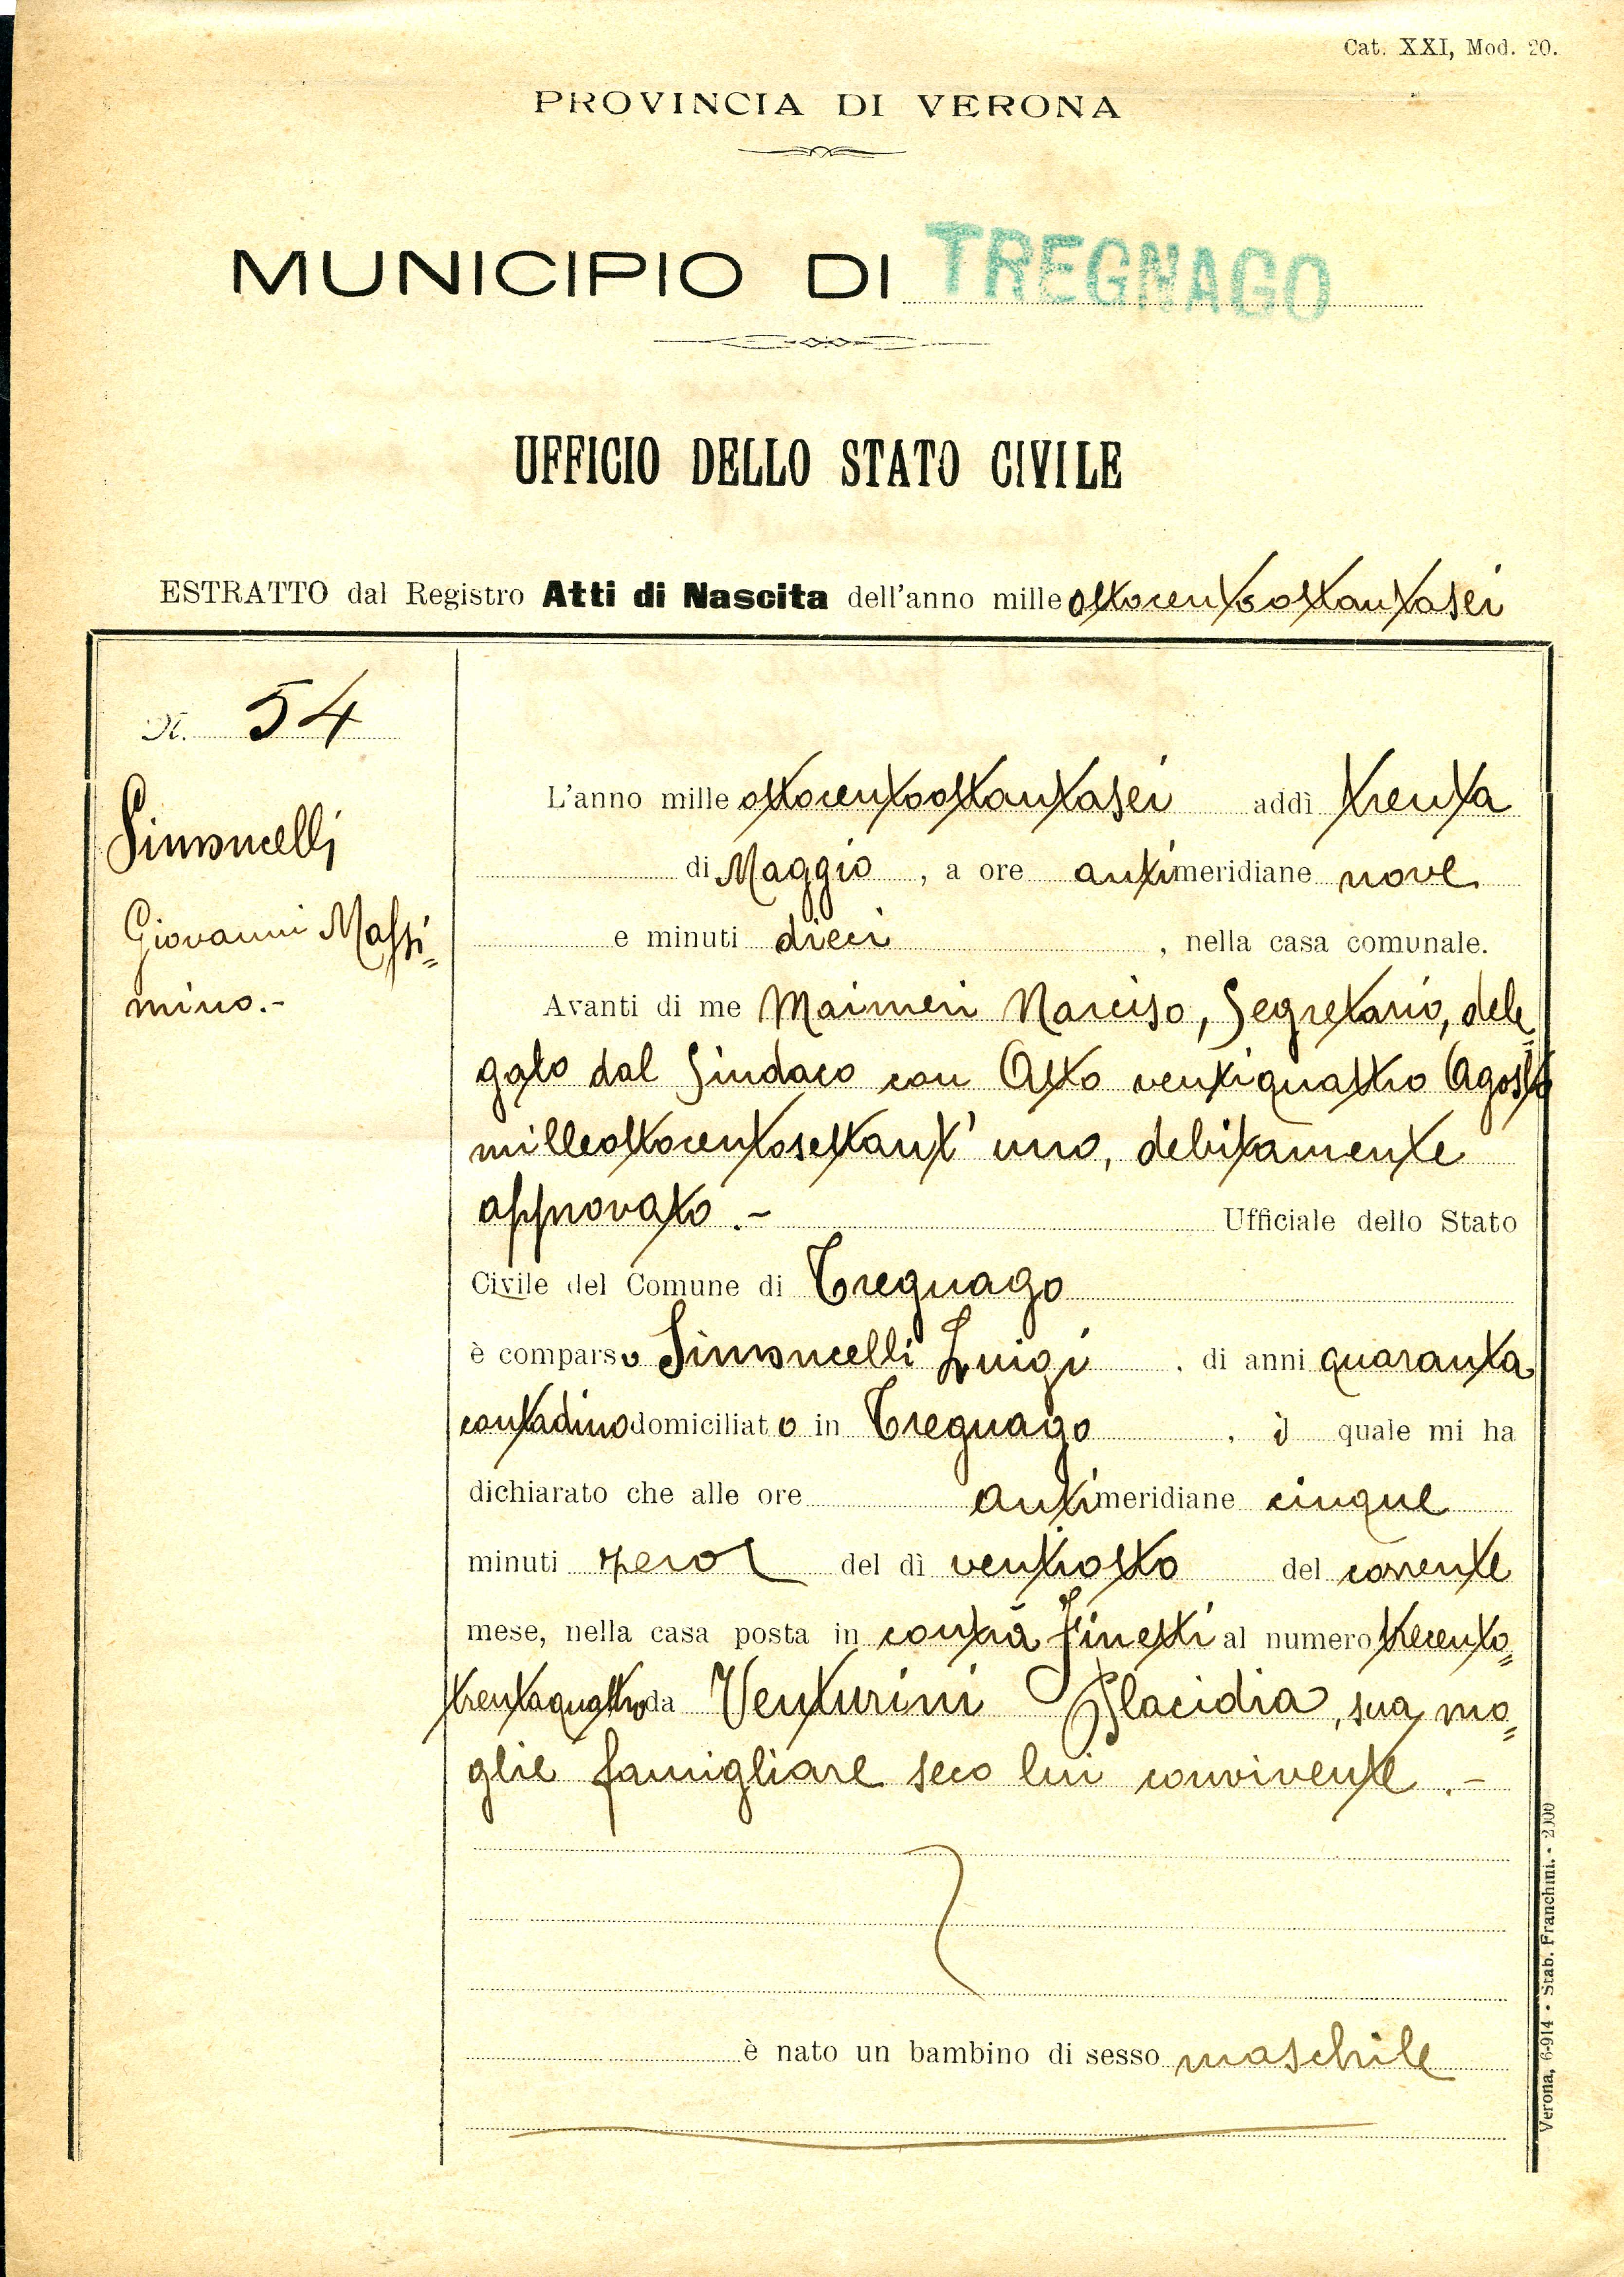 Cat. XXI, Mod. 20.
PROVINCIA DI VERONA
MUNICIPIO DI TREGNAGO
UFFICIO DELLO STATO CIVILE
ESTRATTO dal Registro Atti di Nascita dell'anno mille ottocentoottantasei
N. 54
Simoncelli
Giovanni Massi=
mino.-
L'anno mille ottocentoottantasei addì trenta
di Maggio, a ore antimeridiane nove
e minuti dieci, nella casa comunale.
Avanti di me Maimeri Narciso, Segretario, dele
gato dal Sindaco con Atto ventiquattro Agosto
milleottocentosettant'uno, debitamente
approvato.- Ufficiale dello Stato
Civile del Comune di Tregnago
è comparso Simoncelli Luigi, di anni quaranta
contadino domiciliato in Tregnago, il quale mi ha
dichiarato che alle ore antimeridiane cinque
minuti zero del dì ventiotto del corrente
mese, nella casa posta in contrà Finetti al numero trecento=
trentaquattro da Venturini Placidia, sua mo=
glie famigliare seco lui convivente.-
è nato un bambino di sesso maschile
Verona, 6-914 • Stab. Franchini. • 2000